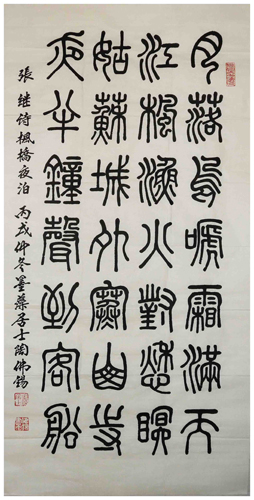 月落烏嗁霜滿天
江楓漁火對愁瞑
姑蘇城外寒山寺
夜半鐘聲到客船
張继诗楓橋夜泊 丙戌仲冬墨居士陶佛錫